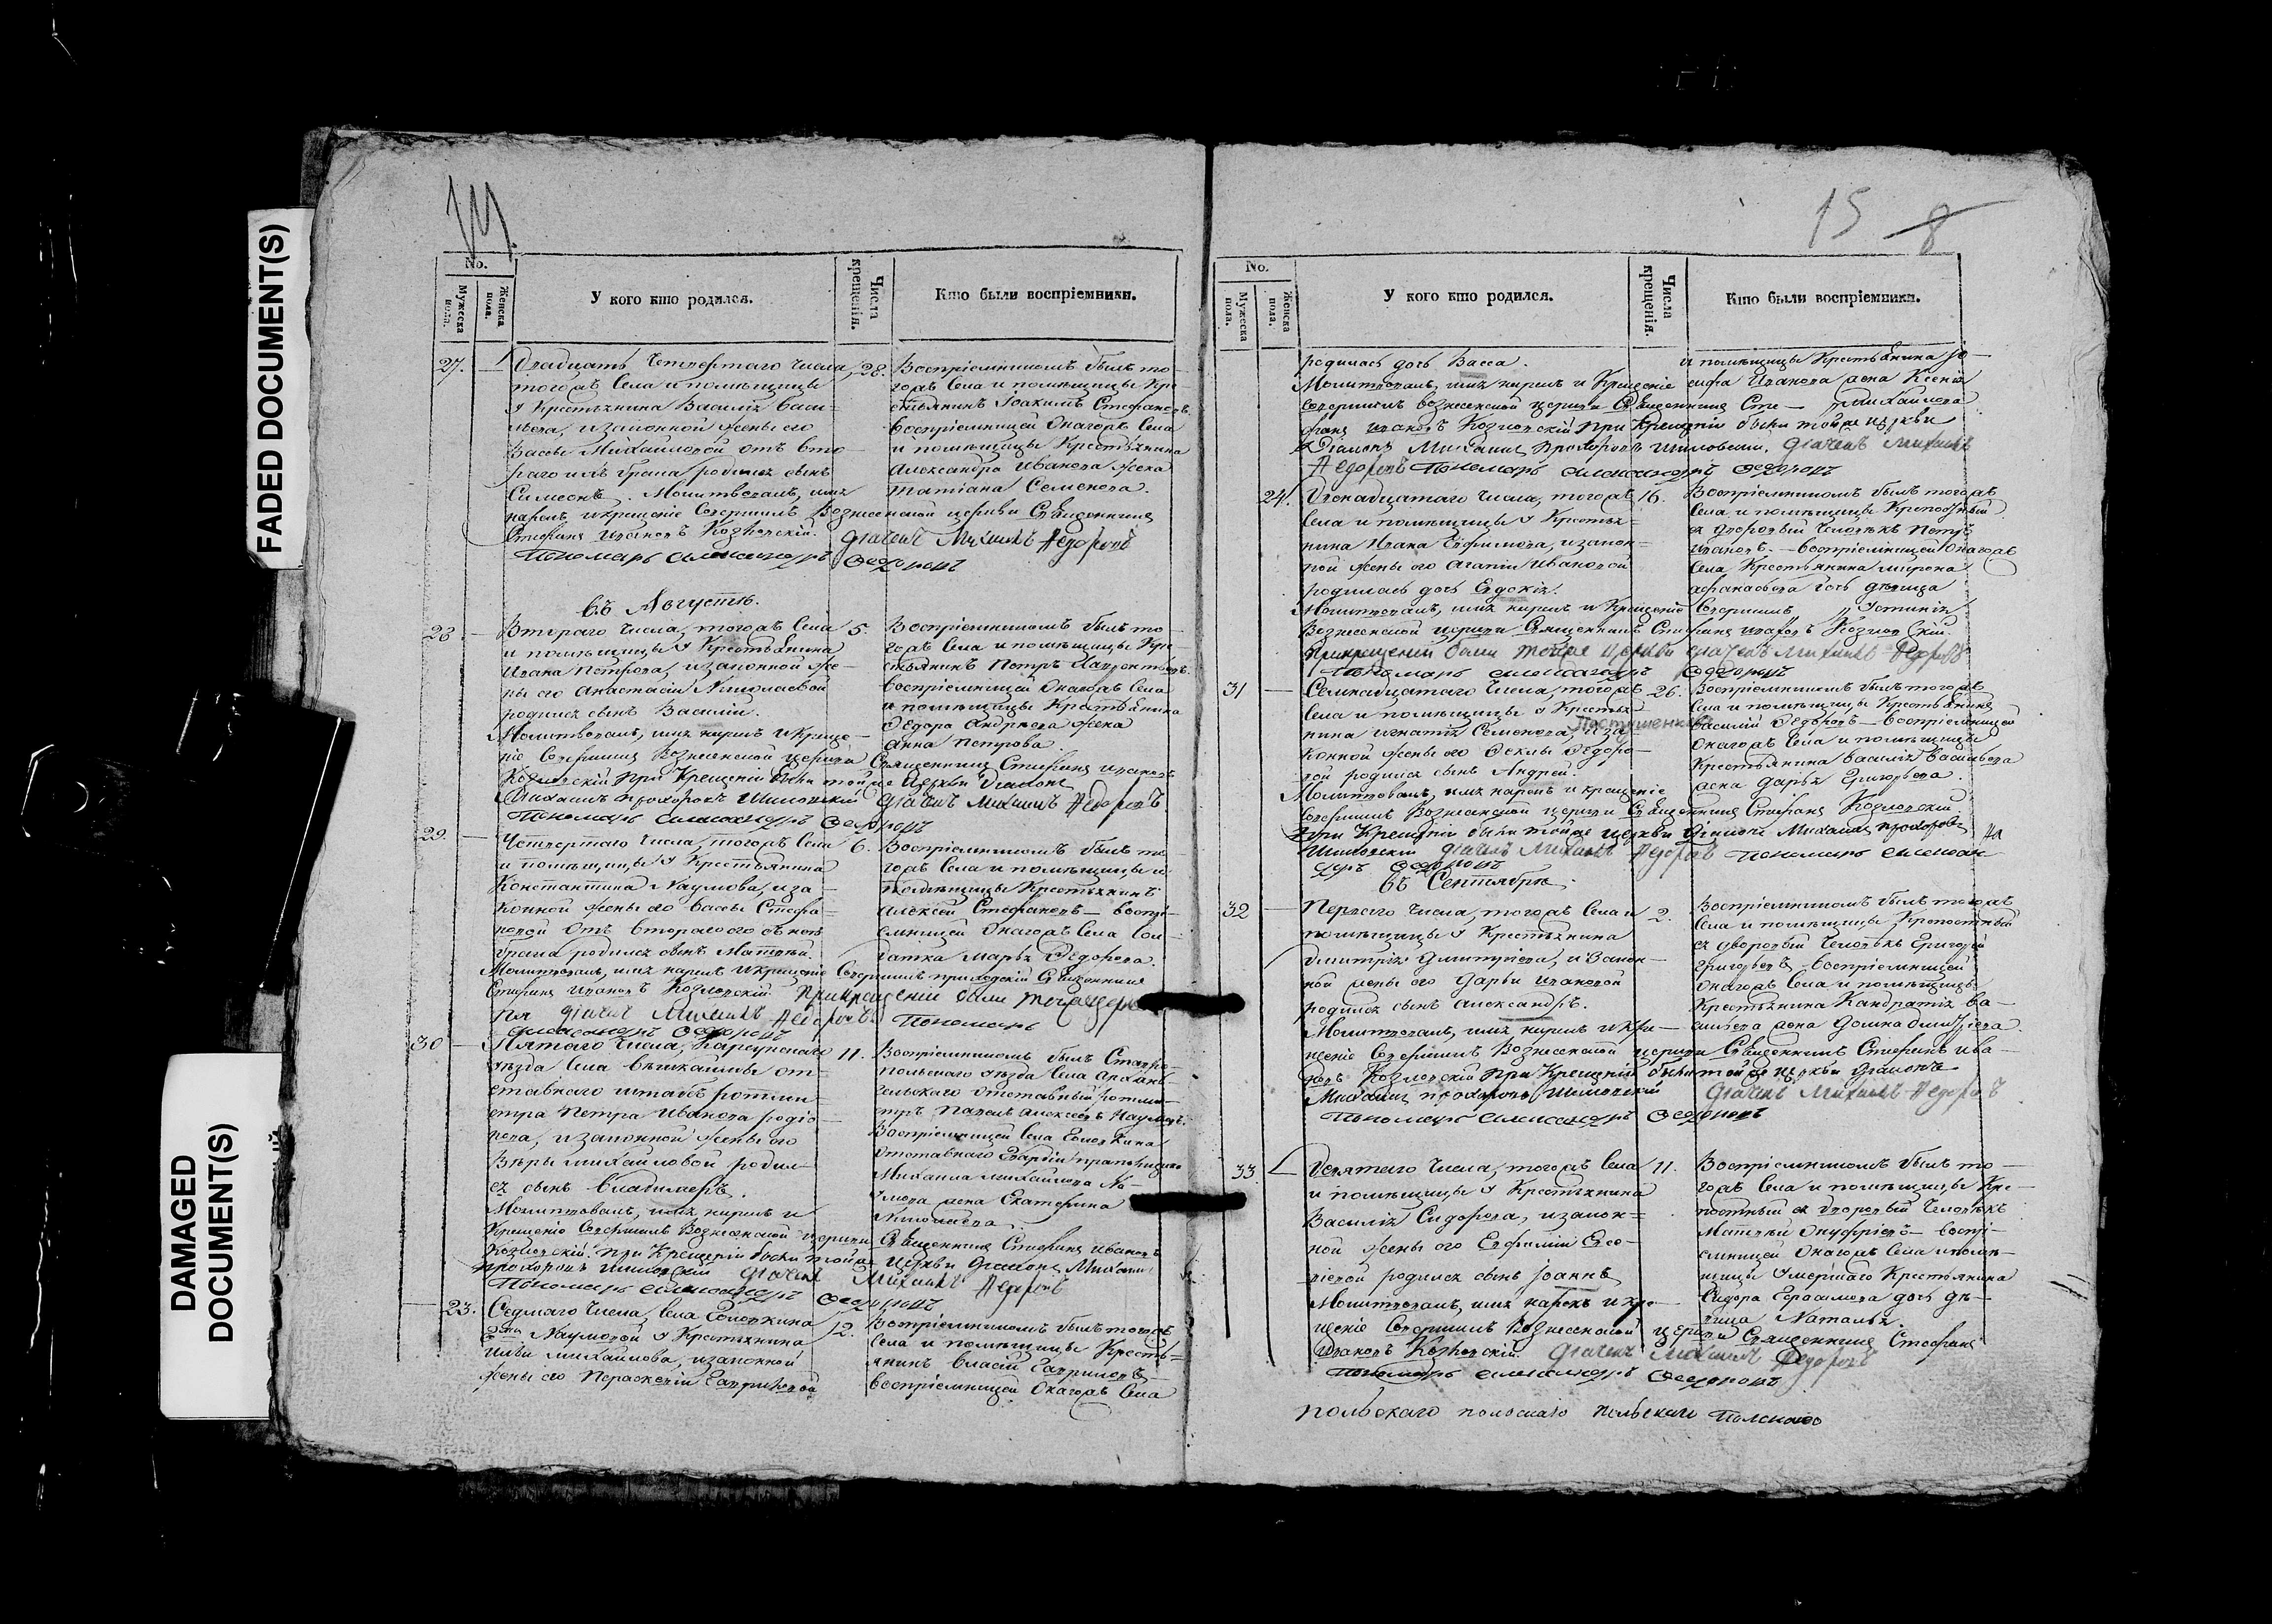 FADED DOCUMENT(S)
DAMAGED
DOCUMENT(S)
15 8
No.
Мужеска пола.
Женска пола.
У кого кто родился.
Числа крещенія.
Кто были воспріемники.
27.
Двадцать Четвертаго Числа,
тогожъ Села и помѣщицы
Крестьянина Василія Васи=
льева, изаконной жены его
Васы Михайловой отъ вто-
раго ихъ брака родился сынъ
Симеонъ. Молитвовалъ, имя
нарекъ икрещеніе Совершилъ Вознесенской церкви Священникъ
Стефанъ Ивановъ Козловскій. Дьячекъ Михаилъ Федоровъ
Пономарь Александръ Федоровъ
28.
Воспріемникомъ былъ то-
гожъ Села и помѣщицы Кре
стьянинъ Іоакимъ Стефановъ
Воспріемницей Онагожъ Села
и помѣщицы Крестьянина
Александра Иванова жена
Татіана Семенова.
въ Августѣ.
28.
Втораго Числа, тогожъ Села
и помѣщицы Крестьянина
Ивана Петрова, изаконной же-
ны его Анастасіи Николаевой
родился сынъ Василій.
Молитвовалъ, имя нарекъ икреще-
ніе Совершилъ Вознесенской церкви Священникъ Стефанъ Ивановъ
Козловскій при Крещеніи были тойже Церкви Діаконъ
Михаилъ Прохоровъ Шиловскій Дьячекъ Михаилъ Федоровъ
Пономарь Александръ Федоровъ
5.
Воспріемникомъ былъ то-
гожъ Села и помѣщицы Кре-
стьянинъ Петръ
воспріемницей Онагожъ Села
и помѣщицы Крестьянина
Федора Андреева жена
Анна Петрова.
29.
Четвертаго Числа, тогожъ Села
и помѣщицы Крестьянина
Константина Наумова, иза-
конной жены его Васы Стефа-
новой отъ втораго его съ нею
брака родился сынъ Матвѣй.
Молитвовалъ, имя нарекъ икрещеніе Совершилъ приходскій Священникъ
Стефанъ Ивановъ Козловскій. При крещеніи были
Дьячекъ Михаилъ Федоровъ Пономарь
Александръ Федоровъ
6.
Воспріемникомъ былъ то-
гожъ Села и помѣщицы и
помѣщицы Крестьянинъ
Алексѣй Стефановъ — воспрі-
емницей Онагожъ Села Сол-
датка Марья Федорова.
30
Пятаго Числа, Карсунскаго
уѣзда Села Вѣшкаймы от-
ставнаго штабъ ротми-
стра Петра Иванова Родіо-
нова, изаконной жены его
Вѣры Михайловой родил-
ся сынъ Владимеръ.
Молитвовалъ, имя нарекъ и
Крещеніе Совершилъ Вознесенской церкви Священникъ Стефанъ Ивановъ
Козловскій. при Крещеніи были тойже Церкви Діаконъ Михаилъ
Прохоровъ Шиловскій Дьячекъ Михаилъ Федоровъ
Пономарь Александръ Федоровъ
11.
Воспріемникомъ былъ Ставро-
польскаго уѣзда Села Архан-
гельскаго отставный ротми-
стръ Павелъ Алексѣевъ Наумовъ.
Воспріемницей Села
отставнаго Гвардіи прапорщика
Михаила Михайлова На-
умова жена Екатерина
Николаева.
23.
Седмаго Числа, Села
Наумовой Крестьянина
Ильи Михайлова, изаконной
жены его Параскевіи Гавриловой
12.
Воспріемникомъ былъ тогожъ
Села и помѣщицы Кресть=
янинъ Власій Гавриловъ
воспріемницей Онагожъ Села
No.
Мужеска пола.
Женска пола.
У кого кто родился.
Числа крещенія.
Кто были воспріемники.
родилась дочь Васса.
Молитвовалъ, имя нарекъ и Крещеніе
Совершилъ Вознесенской церкви Священникъ Сте-
фанъ Ивановъ Козловскій при Крещеніи были тойже церкви
Діаконъ Михаилъ Прохоровъ Шиловскій. Дьячекъ Михаилъ
Федоровъ Пономарь Александръ Федоровъ
и помѣщицы Крестьянина Іо-
сифа Иванова жена Ксенія
Михайлова
24.
Двенадцатаго Числа, тогожъ
Села и помѣщицы Крестья=
нина Ивана Ефимова, изакон=
ной жены его Агапіи Ивановой
родилась дочь Евдокія.
Молитвовалъ, имя нарекъ и Крещеніе Совершилъ
Вознесенской церкви Священникъ Стефанъ Ивановъ Козловскій.
При крещеніи были тойже церкви дьячекъ Михаилъ Федоровъ
Пономарь Александръ Федоровъ
16.
Воспріемникомъ былъ тогожъ
Села и помѣщицы Крепостный
ея дворовый Человѣкъ Петръ
Ивановъ. — воспріемницей Онагожъ
Села Крестьянина Мирона
Афанасьева дочь дѣвица
Устинія
31
Семнадцатаго Числа, тогожъ
Села и помѣщицы Крестья-
нина Игнатія Семенова, иза
конной жены его Феклы Федоро-
вой родился сынъ Андрей.
Молитвовалъ, имя нарекъ и крещеніе
Совершилъ Вознесенской церкви Священникъ Стефанъ Козловскій
при Крещеніи были тойже церкви Діаконъ Михаилъ Прохоровъ
Шиловскій Дьячекъ Михаилъ Федоровъ Пономарь Алексан
дръ Федоровъ
26.
Воспріемникомъ былъ тогожъ
Села и помѣщицы Крестьянинъ
Василій Федоровъ — воспріемницей
Онагожъ Села и помѣщицы
Крестьянина Василія Васильева
жена Дарья Григорьева.
въ Сентябрѣ.
32
Перваго Числа, тогожъ Села и
помѣщицы Крестьянина
Димитрія Димитріева, изакон-
ной жены его Дарьи Ивановой
родился сынъ Александръ.
Молитвовалъ, имя нарекъ икре-
щеніе Совершилъ Вознесенской церкви Священникъ Стефанъ Ива-
новъ Козловскій при Крещеніи были тойже церкви Діаконъ
Михаилъ Прохоровъ Шиловскій Дьячекъ Михаилъ Федоровъ
Пономарь Александръ Федоровъ
2.
Воспріемникомъ былъ тогожъ
Села и помѣщицы Крепостный
ея дворовый Человѣкъ Григорій
Григорьевъ — Воспріемницей
Онагожъ Села и помѣщицы
Крестьянина Кандратія Ва-
сильева жена Домна Димитріева.
33.
Девятаго Числа, тогожъ Села
и помѣщицы Крестьянина
Василія Сидорова, изакон=
ной жены его Евфиміи
родился сынъ Іоаннъ
Молитвовалъ, имя нарекъ и кре-
щеніе Совершилъ Вознесенской церкви Священникъ Стефанъ
Ивановъ Козловскій. Дьячекъ Михаилъ Федоровъ
Пономарь Александръ Федоровъ
11.
Воспріемникомъ былъ то-
гожъ Села и помѣщицы Кре-
постный ея дворовый Человѣкъ
Матвѣй Онуфріевъ — воспрі-
емницей Онагожъ Села и помѣ-
щицы Умершаго Крестьянина
Сидора Герасимова дочь дѣ-
вица Наталья.
польскаго